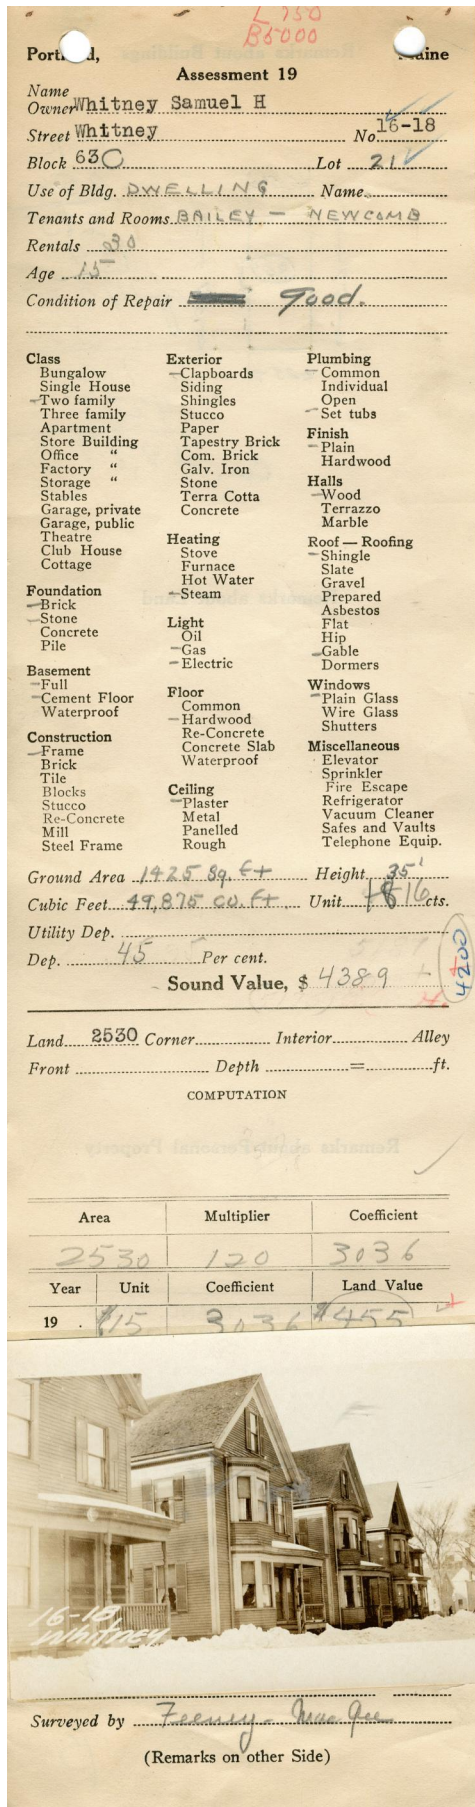 L 750
B5000
Portland, Maine
Assessment 19
Name
Owner Whitney Samuel H
Street Whitney No 16-18
Block 63C Lot 21
Use of Bldg. DWELLING Name
Tenants and Rooms BAILEY - NEWCOMB
Rentals 30
Age 15
Condition of Repair Good.
Class
Bungalow
Single House
Two family
Three family
Apartment
Store Building
Office "
Factory "
Storage "
Stables
Garage, private
Garage, public
Theatre
Club House
Cottage
Foundation
Brick
Stone
Concrete
Pile
Basement
Full
Cement Floor
Waterproof
Construction
Frame
Brick
Tile
Blocks
Stucco
Re-Concrete
Mill
Steel Frame
Exterior
Clapboards
Siding
Shingles
Stucco
Paper
Tapestry Brick
Com. Brick
Galv. Iron
Stone
Terra Cotta
Concrete
Heating
Stove
Furnace
Hot Water
Steam
Light
Oil
Gas
Electric
Floor
Common
Hardwood
Re-Concrete
Concrete Slab
Waterproof
Ceiling
Plaster
Metal
Panelled
Rough
Plumbing
Common
Individual
Open
Set tubs
Finish
Plain
Hardwood
Halls
Wood
Terrazzo
Marble
Roof — Roofing
Shingle
Slate
Gravel
Prepared
Asbestos
Flat
Hip
Gable
Dormers
Windows
Plain Glass
Wire Glass
Shutters
Miscellaneous
Elevator
Sprinkler
Fire Escape
Refrigerator
Vacuum Cleaner
Safes and Vaults
Telephone Equip.
Ground Area 1425 Sq. ft Height 35'
Cubic Feet 49,875 cu. ft. Unit 16 cts.
Utility Dep.
Dep. 45 Per cent.
Sound Value, $ 4389
4200
Land 2530 Corner Interior Alley
Front Depth = ft.
COMPUTATION
Area Multiplier Coefficient
2530 120 3036
Year Unit Coefficient Land Value
19 . $15 3036 $455
16-18
Whitney
Surveyed by Feeney - MacGee
(Remarks on other Side)